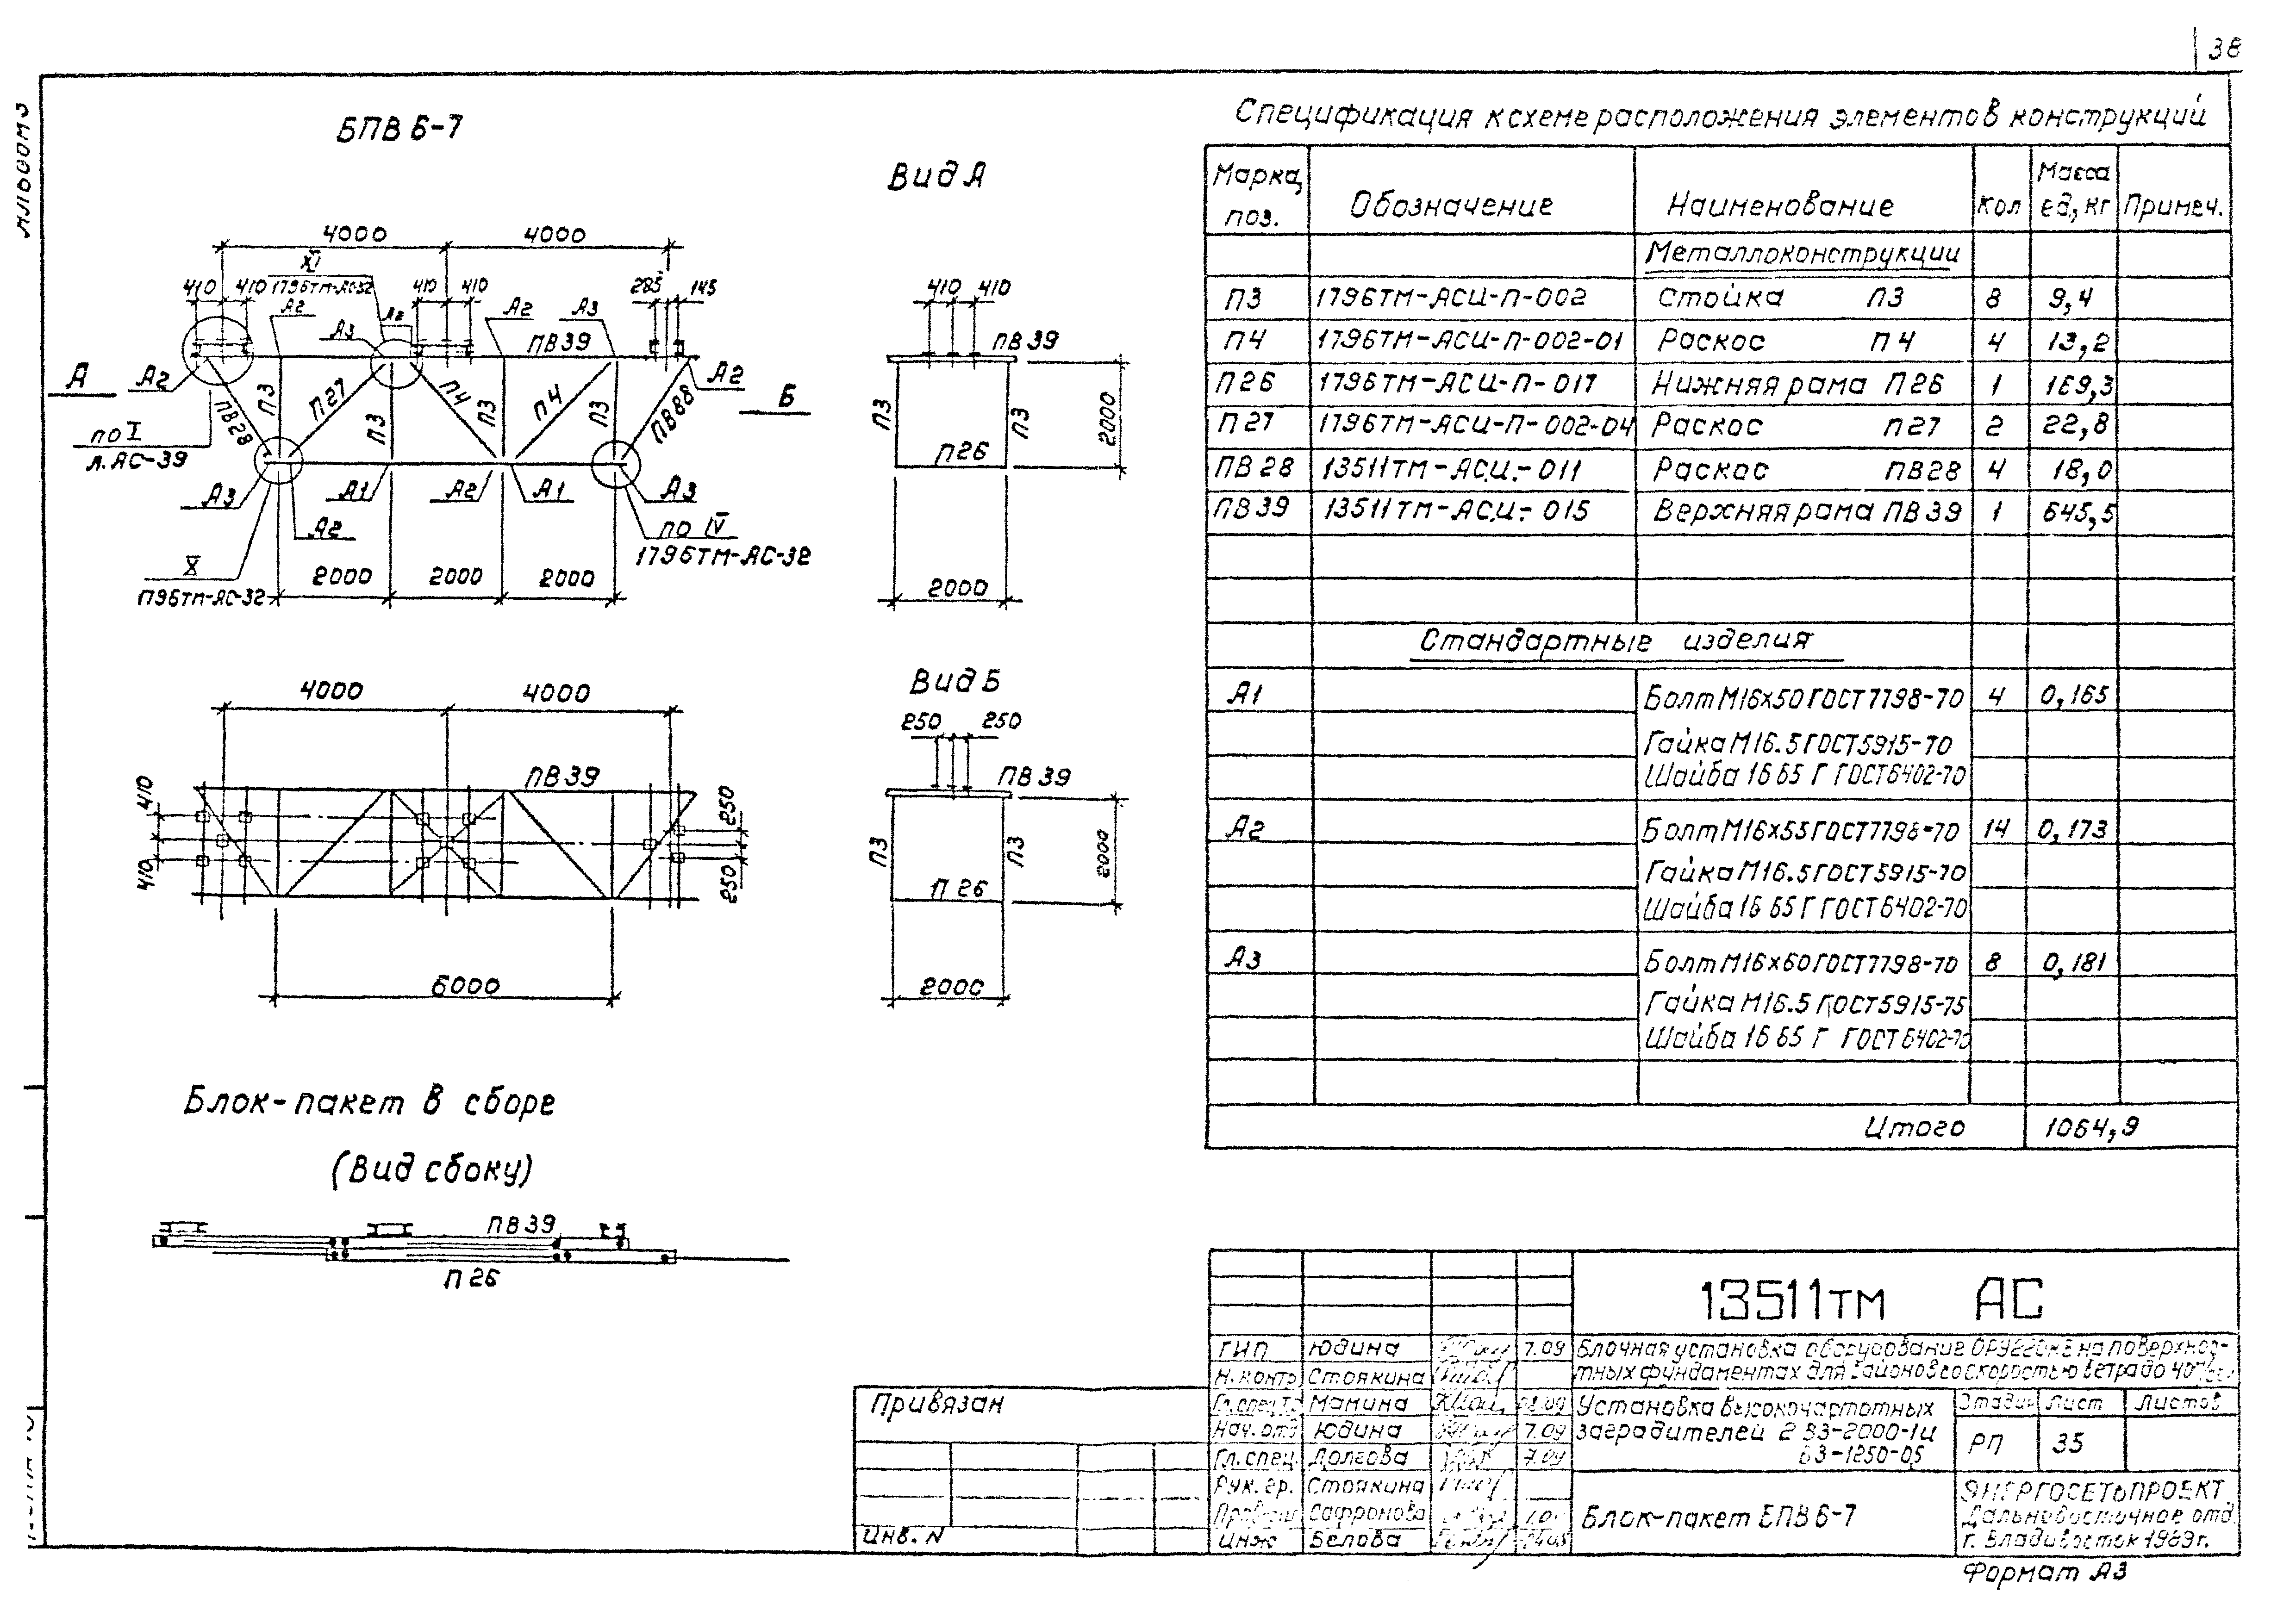 38
БПВ 6-7
4000 4000
XI
1796ТМ-АС-32
410 410 410 410 285 145
А2 А2 А3 А2 А3
ПВ39
А А2 А2 Б
ПВ28 П3 П27 П3 П4 П3 П4 П3 ПВ88
по I
л. АС-39
А3 А1 А2 А1 А3
А2
по IV
1796ТМ-АС-32
X
1796ТМ-АС-32
2000 2000 2000
Вид А
410 410
ПВ39
П3 П3
П26
2000
2000
4000 4000
ПВ39
410
410
250
250
6000
Вид Б
250 250
ПВ39
П3 П3
П26
2000
2000
Блок-пакет в сборе
(Вид сбоку)
ПВ39
П26
Спецификация к схеме расположения элементов конструкций
Марка, поз. Обозначение Наименование Кол Масса ед, кг Примеч.
Металлоконструкции
П3 1796ТМ-АСИ-П-002 Стойка П3 8 9,4
П4 1796ТМ-АСИ-П-002-01 Раскос П4 4 13,2
П26 1796ТМ-АСИ-П-017 Нижняя рама П26 1 169,3
П27 1796ТМ-АСИ-П-002-04 Раскос П27 2 22,8
ПВ28 13511ТМ-АС.И.-011 Раскос ПВ28 4 18,0
ПВ39 13511ТМ-АС.И.-015 Верхняя рама ПВ39 1 645,5
Стандартные изделия
А1 Болт М16х50 ГОСТ 7798-70 4 0,165
Гайка М16.5 ГОСТ 5915-70
Шайба 16 65 Г ГОСТ 6402-70
А2 Болт М16х55 ГОСТ 7798-70 14 0,173
Гайка М16.5 ГОСТ 5915-70
Шайба 16 65 Г ГОСТ 6402-70
А3 Болт М16х60 ГОСТ 7798-70 8 0,181
Гайка М16.5 ГОСТ 5915-75
Шайба 16 65 Г ГОСТ 6402-70
Итого 1064,9
13511тм АС
ГИП Юдина 7.09
Н.контр Стоякина
Гл.спец. Мамина
Нач. отд Юдина 7.09
Гл. спец. Долгова
Рук. гр. Стоякина
Сафронова
Инж Белова
Блочная установка оборудования ОРУ220кВ на поверхнос-
тных фундаментах для районов со скоростью ветра до 40
Установка высокочастотных
заградителей 2 ВЗ-2000-1и
ВЗ-1250-0,5
Стадия Лист Листов
РП 35
Блок-пакет БПВ 6-7
ЭНЕРГОСЕТЬПРОЕКТ
Дальневосточное отд
г. Владивосток 1989г.
Привязан
Инв. N
Формат А3